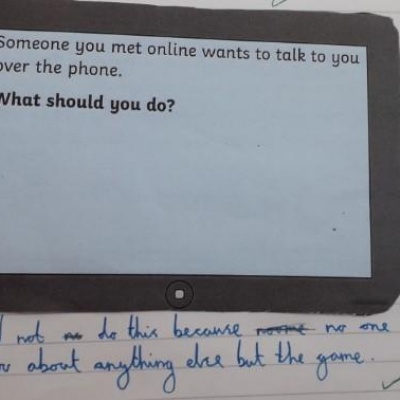 Someone you met online wants to talk to you
over the phone.
What should you do?
not do this because no one
about anything else but the game.